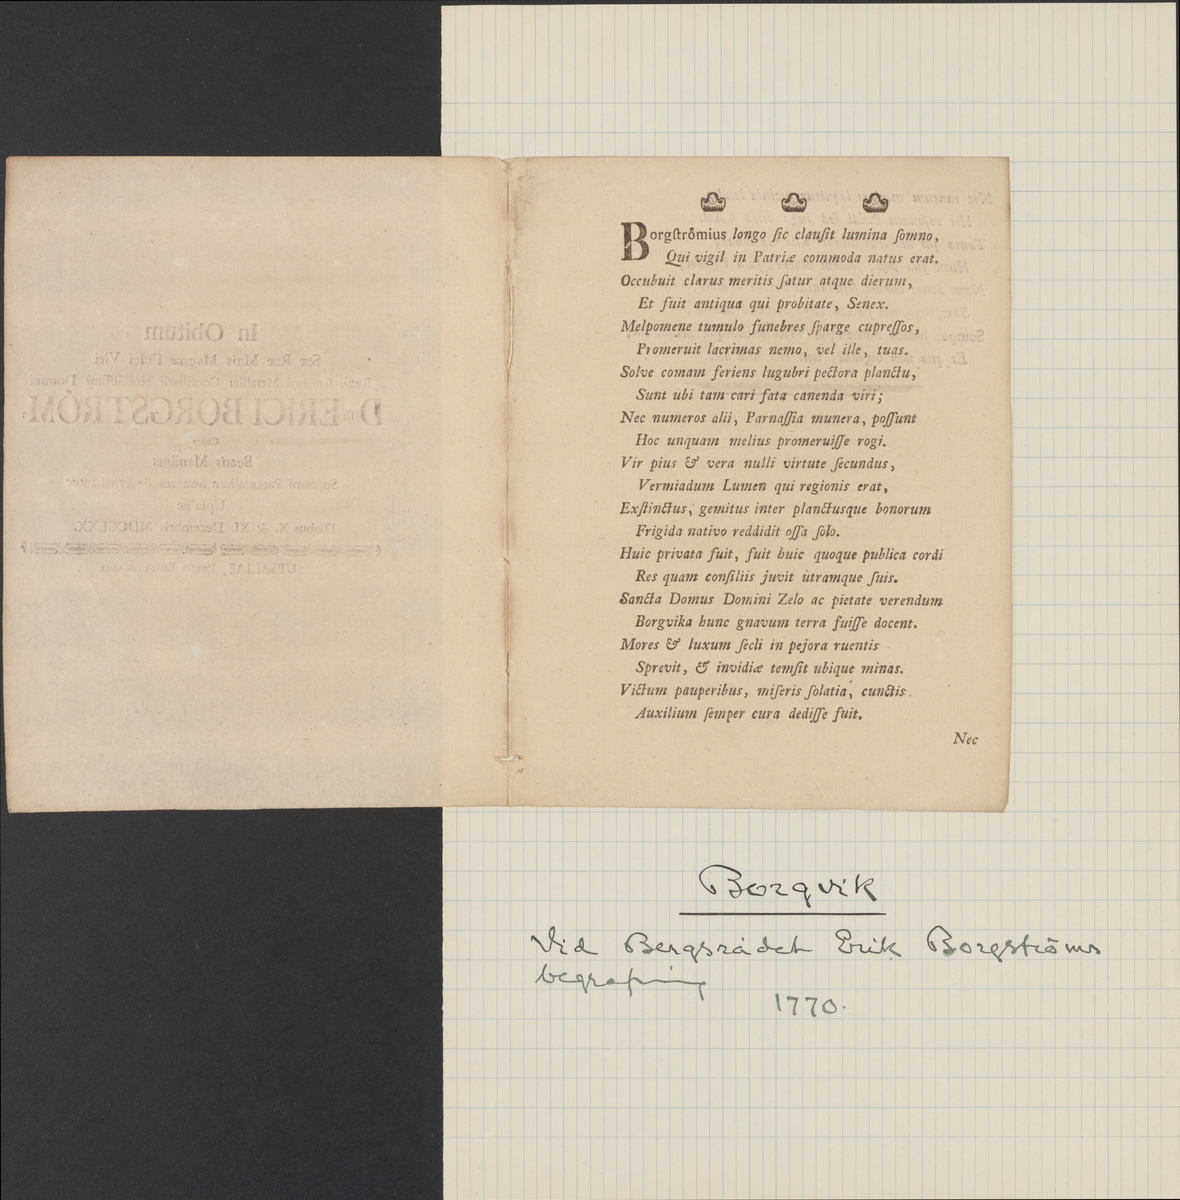 In Obitum
Sæ Ræ Mæis Magnæ Fidei Viri
D. ERICI BORGSTRÖM,
Beatis Manibus
Upsaliæ
Diebus X. & XI. Decembris MDCCLXX.
UPSALIÆ,
Borgstrômius longo ſic clauſit lumina ſomno,
Qui vigil in Patriæ commoda natus erat.
Occubuit clarus meritis ſatur atque dierum,
Et fuit antiqua qui probitate, Senex.
Melpomene tumulo funebres ſparge cupreſſos,
Promeruit lacrimas nemo, vel ille, tuas.
Solve comam feriens lugubri pectora planctu,
Sunt ubi tam cari fata canenda viri;
Nec numeros alii, Parnaſſia munera, poſſunt
Hoc unquam melius promeruiſſe rogi.
Vir pius & vera nulli virtute ſecundus,
Vermiadum Lumen qui regionis erat,
Exſtinctus, gemitus inter planctusque bonorum
Frigida nativo reddidit oſſa ſolo.
Huic privata fuit, fuit huic quoque publica cordi
Res quam conſiliis juvit utramque ſuis.
Sancta Domus Domini Zelo ac pietate verendum
Borgvika hunc gnavum terra fuiſſe docent.
Mores & luxum ſecli in pejora ruentis
Sprevit, & invidiæ temſit ubique minas.
Victum pauperibus, miſeris ſolatia, cunctis
Auxilium ſemper cura dediſſe fuit.
Nec
Borgvik
Vid Bergsrådet Erik Borgströms
begrafning
1770.